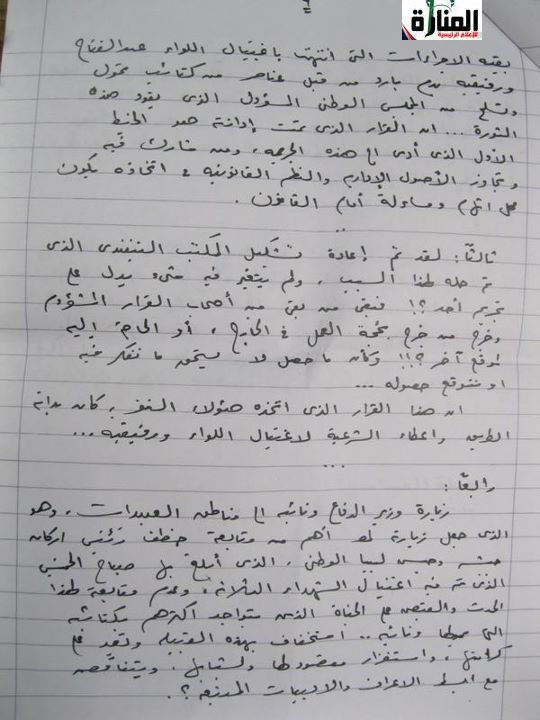 المنارة
للإعلام
بقية الاجراءات التى انتهت باغتيال اللواء عبدالفتاح
ورفيقيه بدم بارد من قبل عناصر من كتائب تمول
وتسلح من المجلس الوطنى المسؤول الذى يقود هذه
الثورة .... ان القرار الذى تمت إدانته هو الخط
الأول الذى أدى الى هذه الجريمه ، ومن شارك فيه
وتجاوز الأصول الإداريه والنظم القانونيه فى اتخاذه يكون
محل اتهام ومساءلة أمام القانون .
..
ثالثاً : لقد تم إعادة تشكيل المكتب التنفيذى الذى
تم حله لهذا السبب ، ولم يتغير فيه شىء يدل على
تجريم أحد ؟! فبقى من بقى من أصحاب القرار المشؤوم
وخرج من خرج بحجة العمل فى الخارج ، أو الحاجة إليه
لموقع آخر ؟!!! وكأن ما حصل لا يستحق ما نفكر فيه
او نتوقع حصوله ...
ان هذا القرار الذى اتخذه هؤلاء النفر ، كان بداية
الطريق واعطاء الشرعية لاغتيال اللواء ورفيقيه ...
...
رابعاً :
زيارة وزير الدفاع ونائبه الى مناطق العبيدات ، وهو
الذى جعل زيارة اهم من متابعة خطف رئيس اركان
جيشه وجيش ليبيا الوطنى ، الذى أبلغ بها صباح الخميس
الذى تم فيه اغتيال الشهداء الثلاثة ، وعدم متابعة لهذا
الحدث والقبض على الجناة الذين يتواجد اكثرهم بكتائبه
التى ونائبه .. استخفاف بهذه القبيلة وتعد على
كرامتها ، واستفزاز مقصود لها ولشبابها . ويتناقض
مع ابسط الاعراف والادبيات المتبعة ؟ .